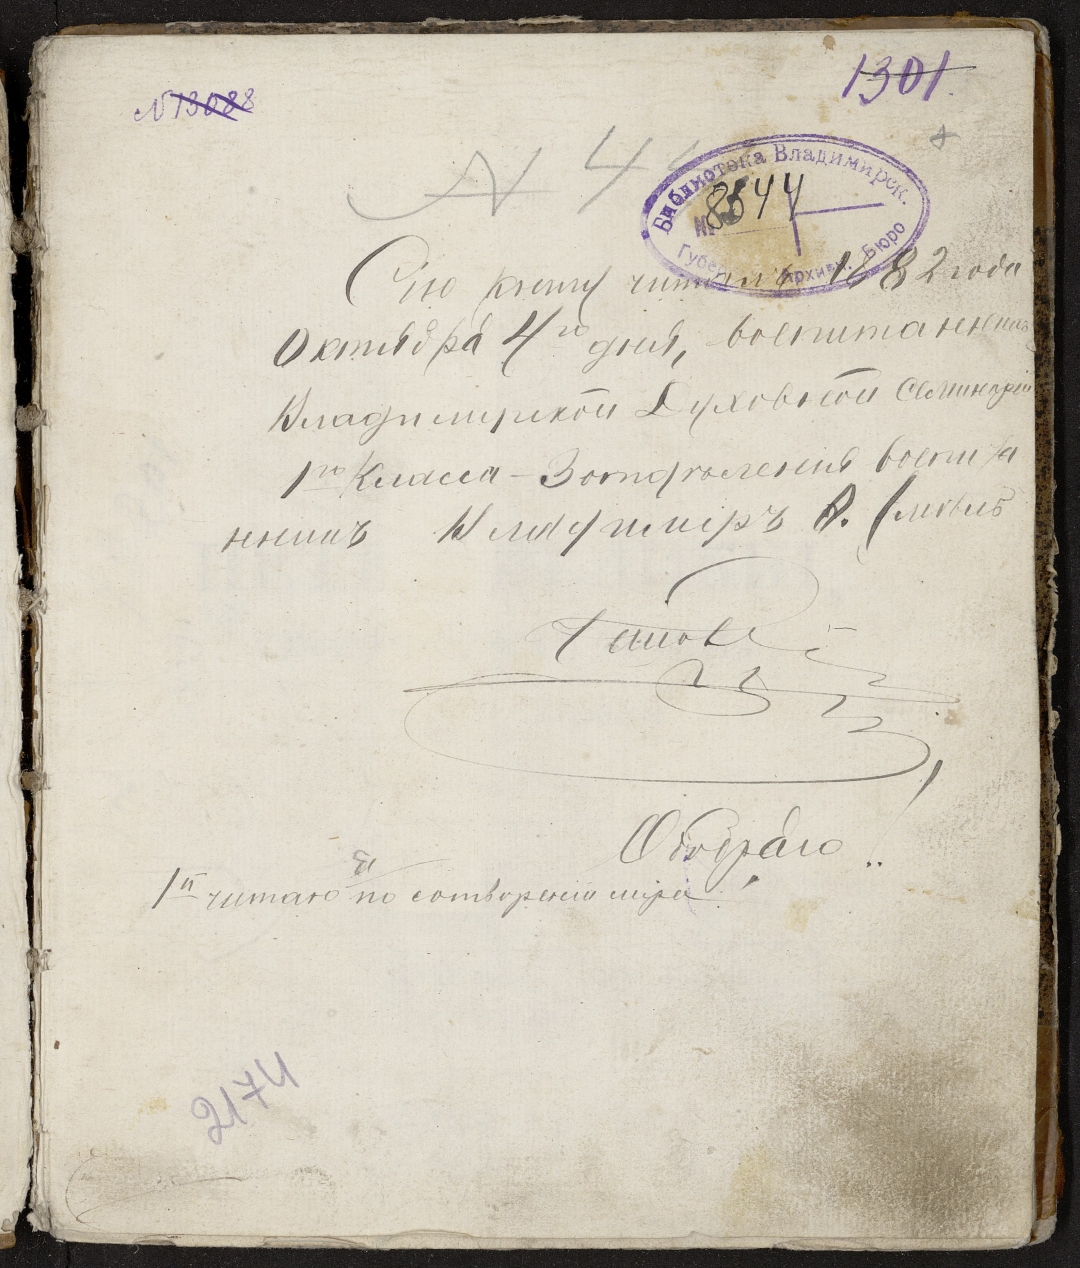 N 13088
1301.
N 4
Библиотека Владимирск.
№ 8544
Губер. Архивн. Бюро
Сію книгу читалъ 1882 года
Октября 4го дня, воспитанникъ
Владимирской Духовной Семинаріи
1го Класса - 3 отдѣленія воспита
нникъ Владимиръ А.
Обобраго!..
1й читаю по сотворенiи мiра
2174